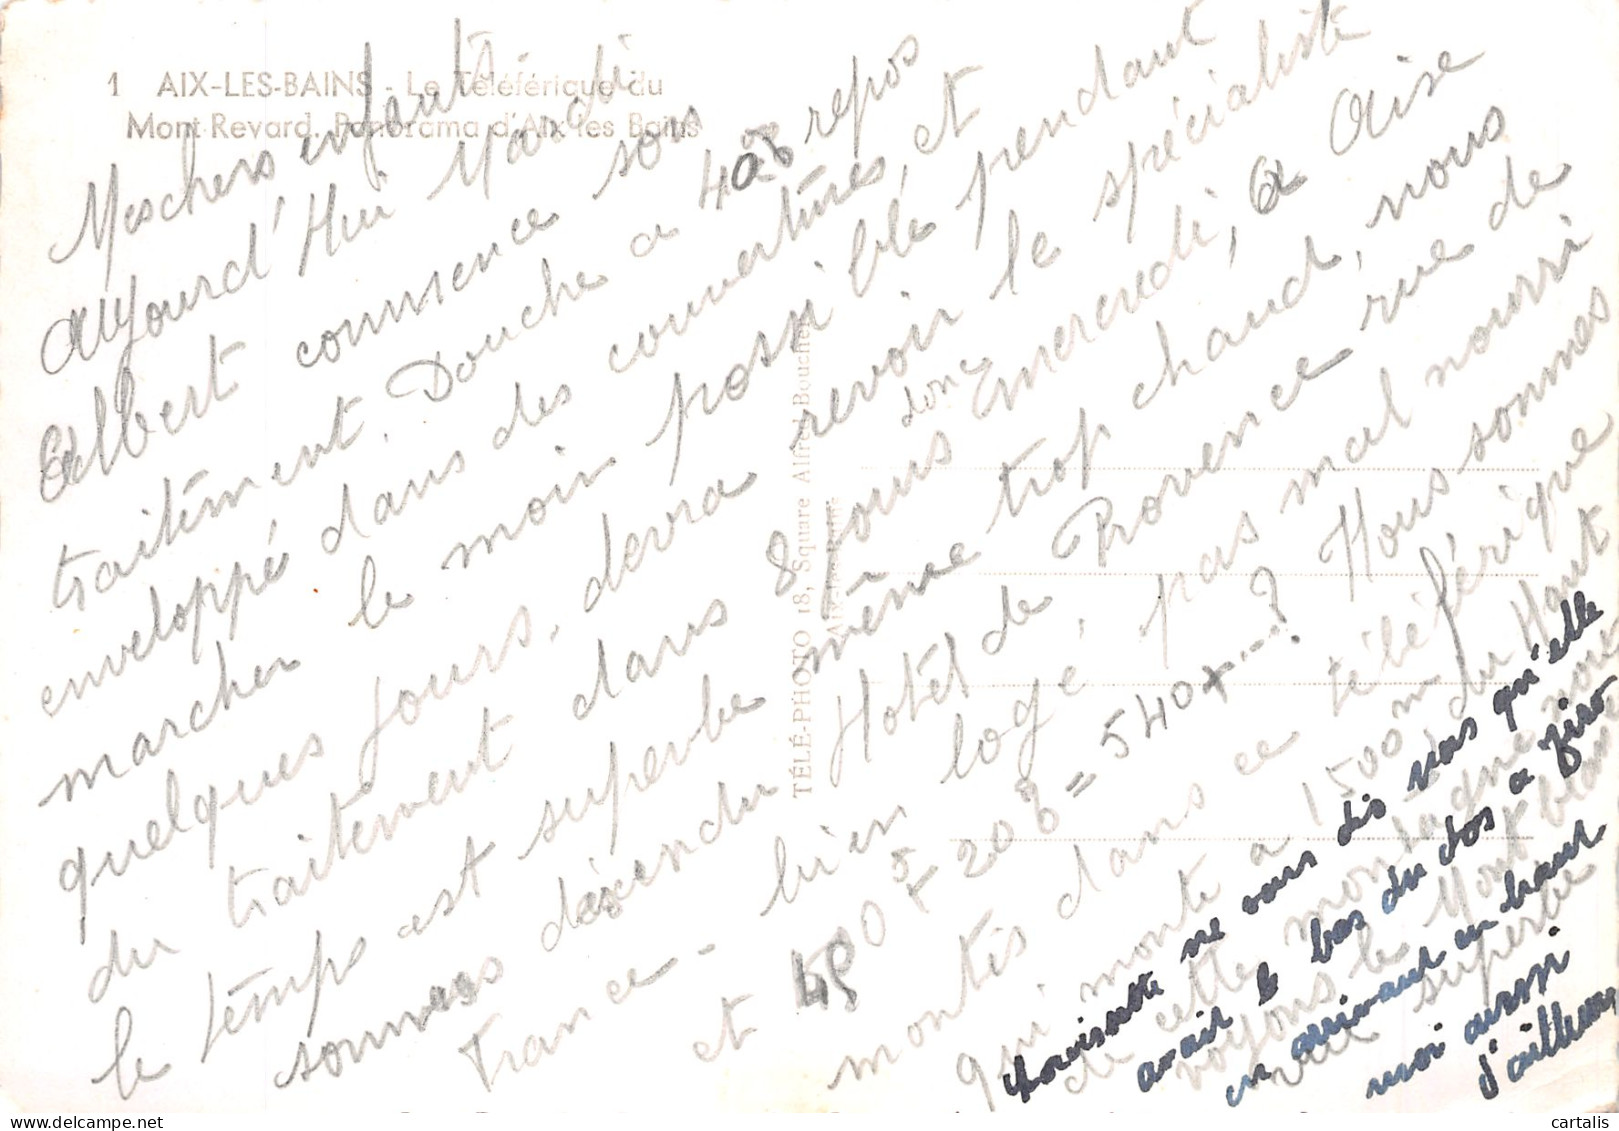 1 AIX-LES-BAINS - Le Téléférique du
Mont Revard. Panorama d'Aix les Bains
TÉLÉ-PHOTO 18, Square Alfred Boucher
Aix-les-Bains
Mes chers enfants
aujourd'Hui Mardi
Albert commence son
traitement. Douche a 40° repos
enveloppé dans des couvertures, et
marcher le moin possible pendant
quelques jours. devra revoir le spécialiste
du traitement dans 8 jours donc
mercredi, a Aise
le temps est superbe même trop chaud, nous
sommes déscendu Hotel de Provence rue de
France - bien logé, pas mal nourri
et 20% = 540 ? Nous sommes
montés dans ce téléférique
qui monte a 1500 m du Haut
de cette montagne nous
voyons le Mont blanc
vue superbe
Louisette ne vous dis pas qu'elle
avait le bas du dos a ziro
en arrivant en haut
moi aussi
d'ailleurs